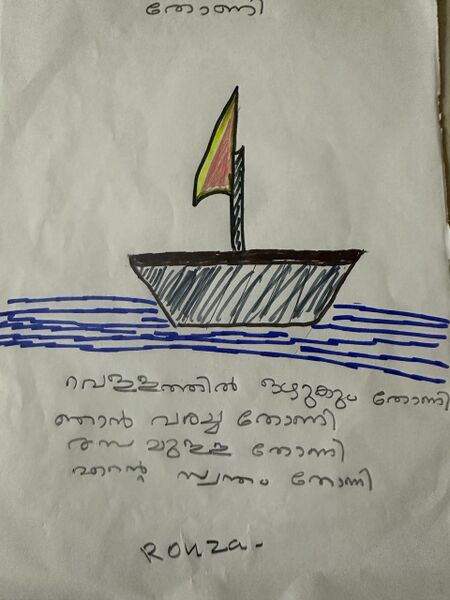 തോണി
വെള്ളത്തിൽ ഒഴുകും തോണി
ഞാൻ വരച്ച തോണി
രസ മുള്ള തോണി
എന്റെ സ്വന്തം തോണി
Rouza-